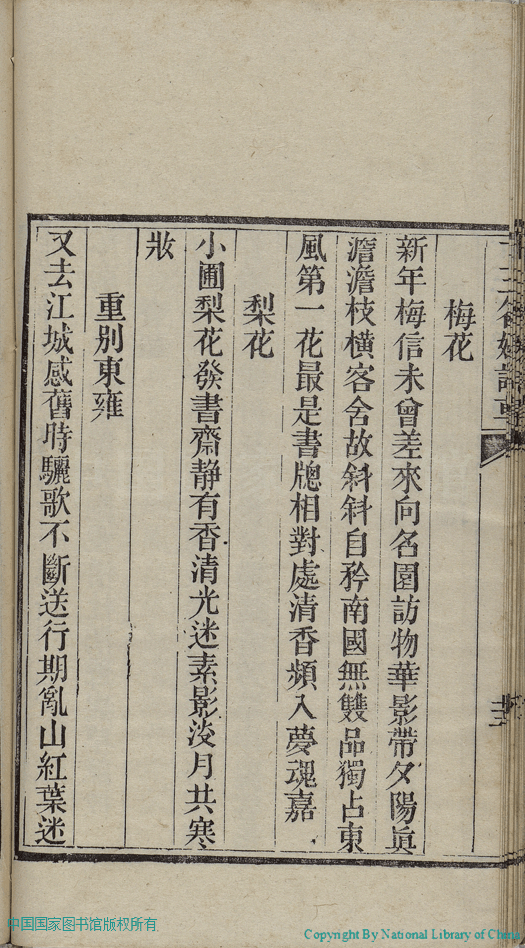 梅花
新年梅信未曾差來向名園訪物華影帶夕陽眞
澹澹枝横客舍故斜斜自矜南國無雙品獨占東
風第一花最是書牕相對處清香頻入夢魂嘉
梨花
小圃梨花發書齋静有香清光迷素影淡月共寒
妝
重别東雍
又去江城感舊時驪歌不斷送行期亂山紅葉迷
中国国家图书馆版权所有
Copyright By National Library of China